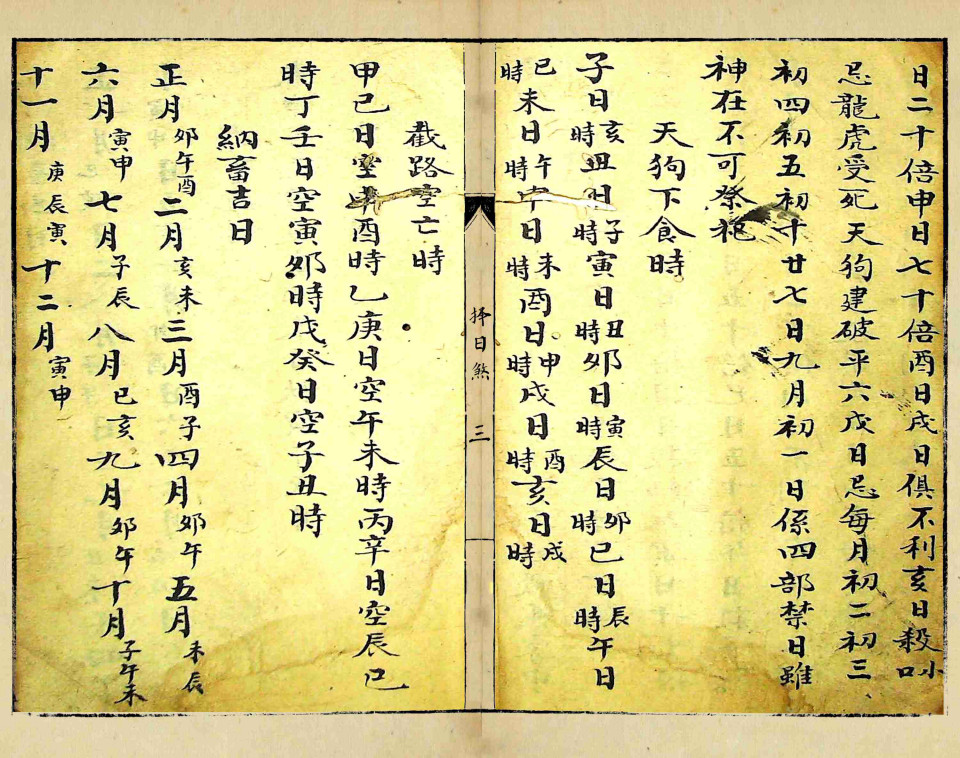 日二十倍申日七十倍酉日戌日俱不利亥日殺小口
忌龍虎受死天狗建破平六戊日忌每月初二初三
初四初五初十廿七日九月初一日係四部禁日雖
神在不可祭祀
天狗下食時
子日亥時丑日子時寅日丑時卯日寅時辰日卯時巳日辰時午日
巳時未日午時申日未時酉日申時戌日酉時亥日戌時
择日煞 三
截路空亡時
甲己日空申酉時乙庚日空午未時丙辛日空辰巳
時丁壬日空寅卯時戊癸日空子丑時
納畜吉日
正月卯午酉二月亥未三月酉子四月卯午五月未辰
六月寅申七月子辰八月巳亥九月卯午十月子午未
十一月庚辰寅十二月寅申